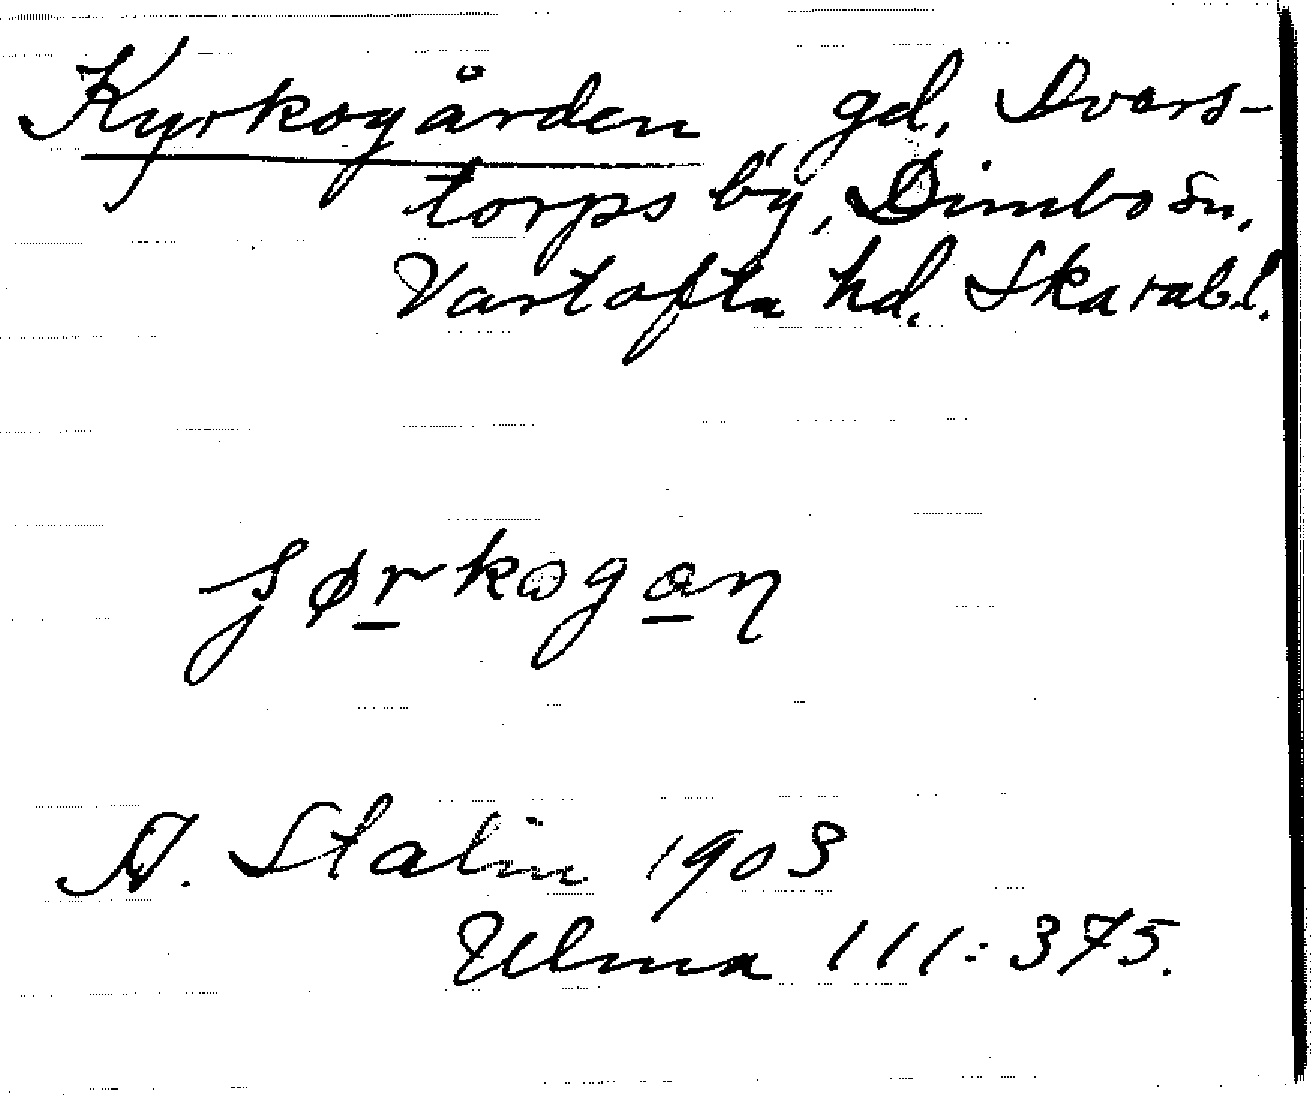 Kyrkogården gd, Dvars-
torps by, Dimbo sn,
Vartofta hd. Skarabl.
A. Stalin 1903
Ulma 111:375.